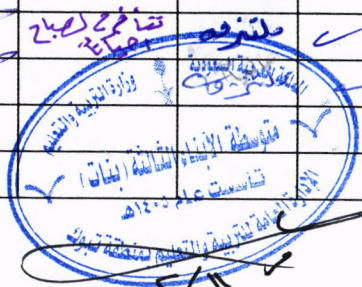 ملتزمه
تتأخر في الصباح
أحياناً
المملكة العربية السعودية
وزارة التربية والتعليم
متوسطة الأبناء الثالثة (بنات)
تأسست عام ١٤٠٥هـ
الإدارة العامة للتربية والتعليم بمنطقة تبوك